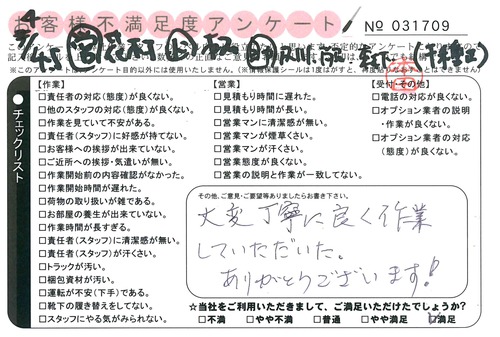 お客様不満足度アンケート
№ 031709
チェックリスト
【作業】
□責任者の対応(態度)が良くない。
□他のスタッフの対応(態度)が良くない。
□作業を見ていて不安がある。
□責任者(スタッフ)に好感が持てない。
□お客様への挨拶が出来ていない。
□ご近所への挨拶・気遣いが無い。
□作業開始前の内容確認がなかった。
□作業開始時間が遅れた。
□荷物の取り扱いが雑である。
□お部屋の養生が出来ていない。
□作業時間が長すぎる。
□責任者(スタッフ)に清潔感が無い。
□責任者(スタッフ)が汗くさい。
□トラックが汚い。
□梱包資材が汚い。
□運転が不安(下手)である。
□靴下の履き替えをしてない。
□スタッフにやる気がみられない。
【営業】
□見積もり時間に遅れた。
□見積もり時間が長い。
□営業マンに清潔感が無い。
□営業マンが煙草くさい。
□営業マンが汗くさい。
□営業態度が良くない。
□営業の説明と作業が一致してない。
【受付・その他】
□電話の対応が良くない。
□オプション業者の説明
・作業が良くない。
□オプション業者の対応
(態度)が良くない。
その他、ご意見・ご要望等ありましたらお書き下さい。
大変丁寧に良く作業
していただいた。
ありがとうございます!
☆当社をご利用いただきまして、ご満足いただけたでしょうか?
□不満 □やや不満 □普通 □やや満足 □満足